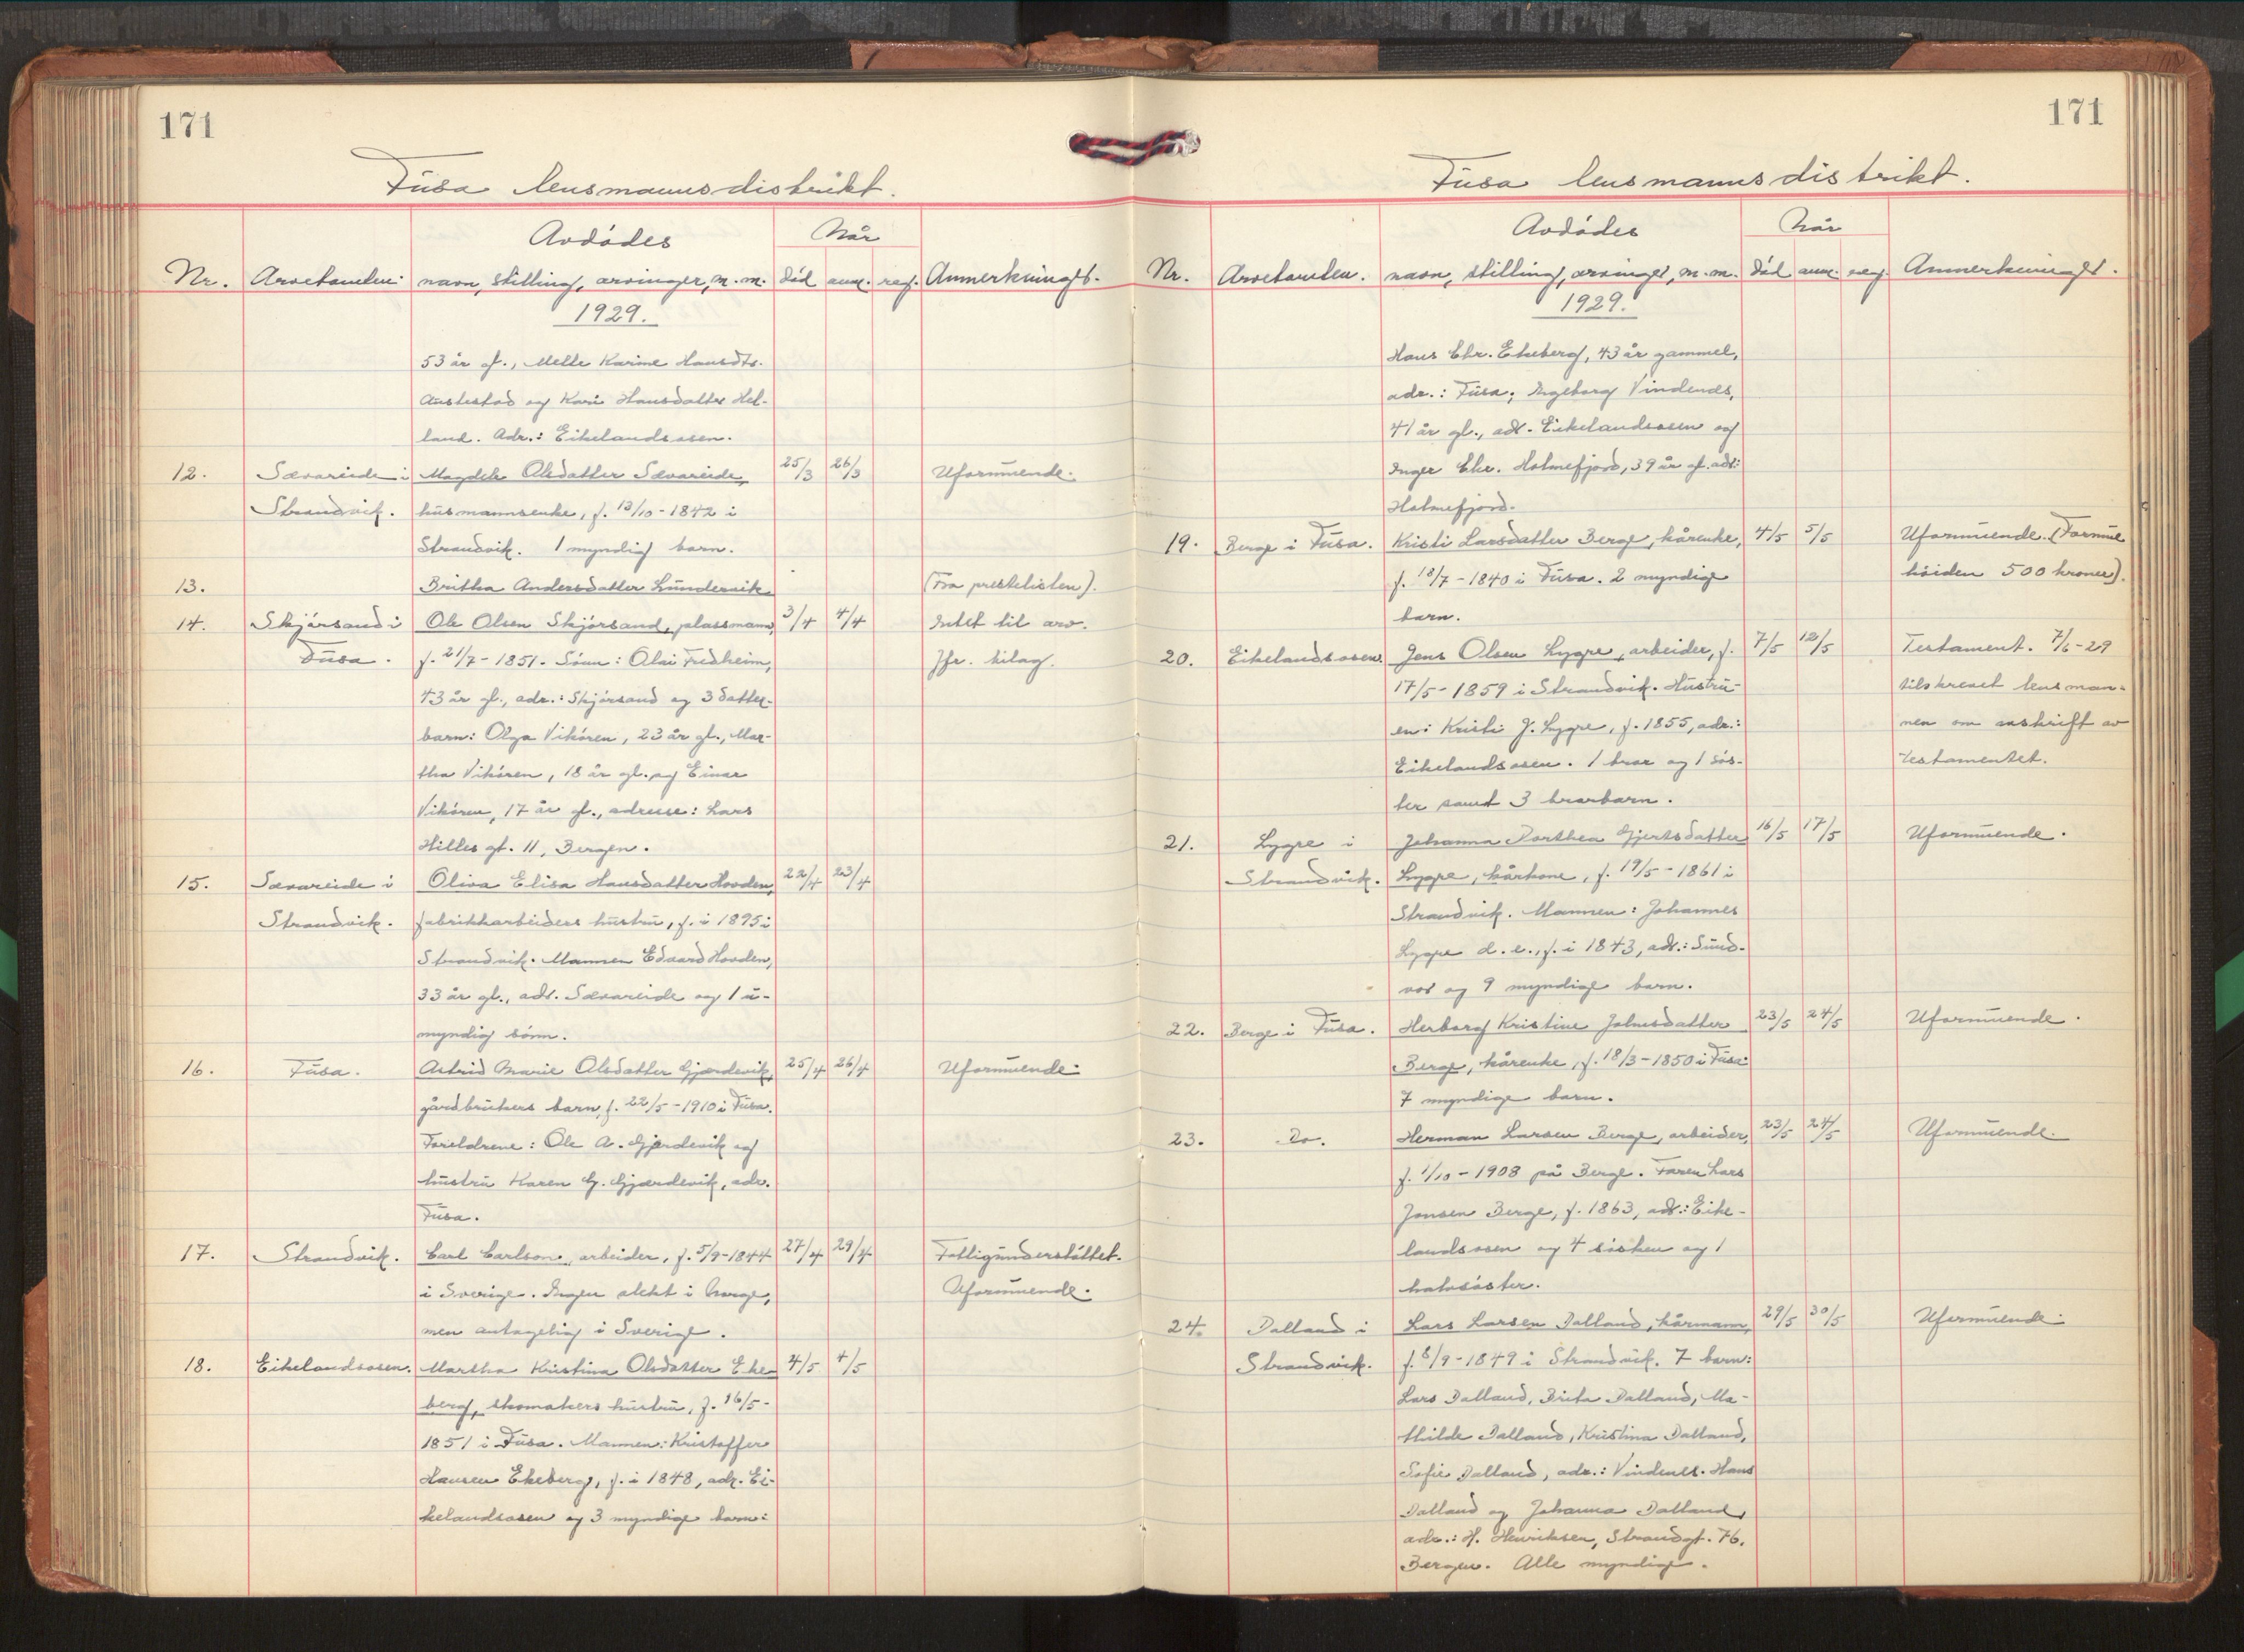 171
Fusa lensmannsdistrikt.
Avdødes
Når
Nr. Arvetomten. navn, stilling, arvinger, m.m. død anm. reg. Anmerkninger.
1929.
53 år gl., Melle Karine Hansdtr.
Austestad og Kari Hansdatter Hel-
land. Adr.: Eikelandsosen.
12. Sævareide i Magdele Olsdatter Sævareide, 25/3 26/3 Uformuende.
Strandvik. husmannsenke, f. 13/10-1842 i
Strandvik. 1 myndig barn.
13. Britha Andersdatter Lundervik (Fra prestelisten).
14. Skjørsand i Ole Olsen Skjørsand, plassmann, 3/4 4/4 Intet til arv.
Fusa. f. 21/7-1851. Sønn: Olai Fredheim, Jfr. bilag.
43 år gl., adr.: Skjørsand og 3 datter-
barn: Olga Vikøren, 23 år gl., Mar-
tha Vikøren, 18 år gl. og Einar
Vikøren, 17 år gl., adresse: Lars
Hilles gt. 11, Bergen.
15. Sævareide i Oliva Elisa Hansdatter Hovden, 22/4 23/4
Strandvik. fabrikkarbeiders hustru, f. i 1895 i
Strandvik. Mannen Edvard Hovden,
33 år gl., adr. Sævareide og 1 u-
myndig sønn.
16. Fusa. Astrid Marie Olsdatter Gjærdevik, 25/4 26/4 Uformuende.
gårdbrukers barn, f. 22/5-1910 i Fusa.
Foreldrene: Ole A. Gjærdevik og
hustru Karen G. Gjærdevik, adr.
Fusa.
17. Strandvik. Carl Carlson, arbeider, f. 5/9-1844 27/4 29/4 Fattigunderstøttet.
i Sverige. Ingen slekt i Norge, Uformuende.
men antagelig i Sverige.
18. Eikelandsosen. Martha Kristina Olsdatter Eke- 4/5 4/5
berg, skomakers hustru, f. 16/5-
1851 i Fusa. Mannen: Kristoffer
Hansen Ekeberg, f. i 1848, adr. Ei-
kelandsosen og 3 myndige barn:
171
Fusa lensmannsdistrikt.
Avdødes
Når
Nr. Arvetomten. navn, stilling, arvinger, m.m. død anm. reg. Anmerkninger.
1929.
Hans Chr. Ekeberg, 43 år gammel,
adr.: Fusa; Ingeborg Vindends,
41 år gl., adr. Eikelandsosen og
Inger Chr. Holmefjord, 39 år gl. adr:
Holmefjord.
19. Berge i Fusa. Kristi Larsdatter Berge, kårenke, 4/5 5/5 Uformuende. (Formue
f. 18/7-1840 i Fusa. 2 myndige høiden 500 kroner).
barn.
20. Eikelandsosen. Jens Olsen Lygre, arbeider, f. 7/5 12/5 Testament. 7/6-29
17/5-1859 i Strandvik. Hustru- tilskrevet lensman-
en: Kristi J. Lygre, f. 1855, adr.: nen om avskrift av
Eikelandsosen. 1 bror og 1 søs- testamentet.
ter samt 3 brorbarn.
21. Lygre i Johanna Dorthea Gjertsdatter 16/5 17/5 Uformuende.
Strandvik. Lygre, kårkone, f. 19/5-1861 i
Strandvik. Mannen: Johannes
Lygre d. e., f. i 1843, adr.: Sund-
vor og 9 myndige barn.
22. Berge i Fusa. Herborg Kristine Johnsdatter 23/5 24/5 Uformuende.
Berge, kårenke, f. 18/3-1850 i Fusa.
7 myndige barn.
23. Do. Herman Larsen Berge, arbeider, 23/5 24/5 Uformuende.
f. 1/10-1908 på Berge. Faren Lars
Jonsen Berge, f. 1863, adr.: Eike-
landsosen og 4 søsken og 1
halvsøster.
24. Dalland i Lars Larsen Dalland, kårmann, 29/5 30/5 Uformuende.
Strandvik. f. 8/9-1849 i Strandvik. 7 barn:
Lars Dalland, Brita Dalland, Ma-
thilde Dalland, Kristina Dalland,
Sofie Dalland, adr.: Vindenes. Hans
Dalland og Johanna Dalland,
adr.: H. Henriksen, Strandgt. 76,
Bergen. Alle myndige.